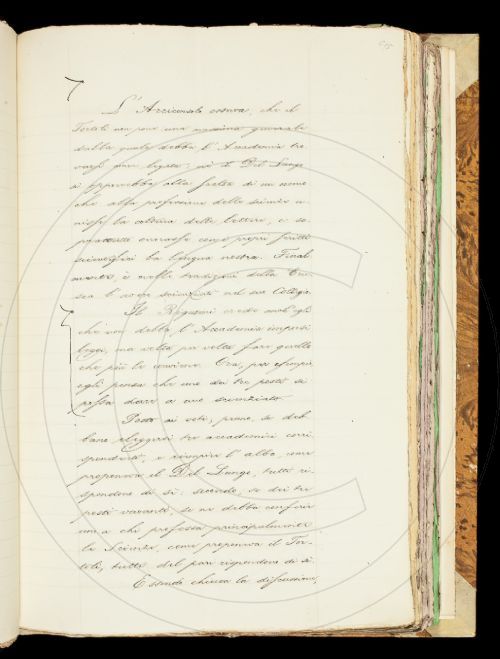 L'Arciconsolo osserva, che il
Tortoli non pone una massima generale
dalla quale debba l'Accademia tro-
varsi poi legata; nè il Del Lungo
si opporrebbe alla scelta di un uomo
che alla professione delle scienze u-
nisse la coltura delle lettere, e so-
prattutto onorasse co' proprj scritti
scientifici la lingua nostra. Final-
mente, è nelle tradizioni della Cru-
sca l'avere scienziati nel suo Collegio.
Il Rigutini crede anch'egli
che non debba l'Accademia imporsi
leggi, ma volta per volta fare quello
che più le conviene. Ora, per esempio,
egli pensa che uno dei tre posti si
possa dare a uno scienziato.
Posto ai voti, primo, se deb-
bano eleggersi tre accademici corri-
spondenti, e riempire l'albo, come
proponeva il Del Lungo, tutti ri-
spondono di sì: secondo, se dei tre
posti vacanti, se ne debba conferir
uno a chi professa principalmente
le Scienze, come proponeva il Tor-
toli, tutti del pari rispondono di sì.
Essendo chiusa la discussione,